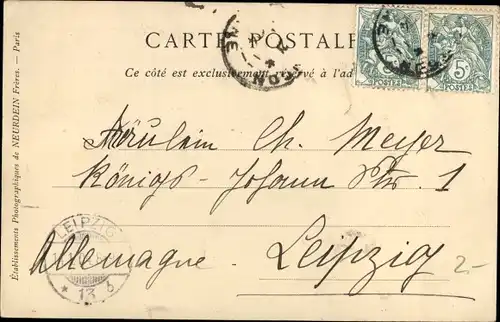 CARTE POSTALE
Ce côté est exclusivement réservé à l'ad
5c
POSTES
5c
POSTES
Établissements Photographiques de NEURDEIN Frères. — Paris
Fräulein Ch. Meyer
Königs-Johann Str. 1
LEIPZIG
* 13 b
Allemagne. Leipzig
2-